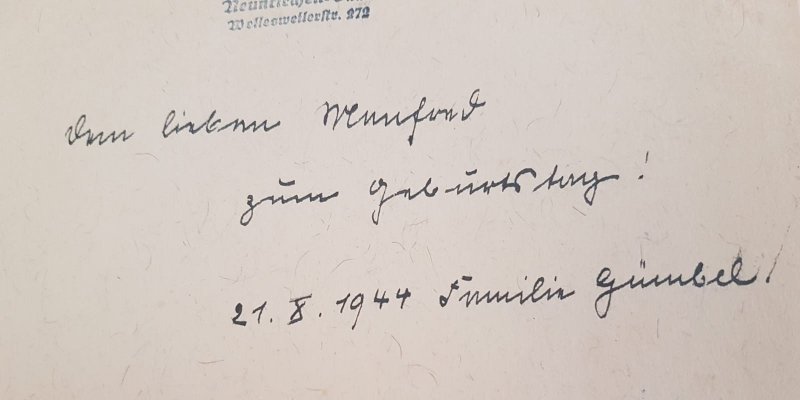 Neunkirchen-Saar
Wellesweilerstr. 272
Dem lieben Manfred
zum Geburtstag!
21. X. 1944 Familie Gümbel.